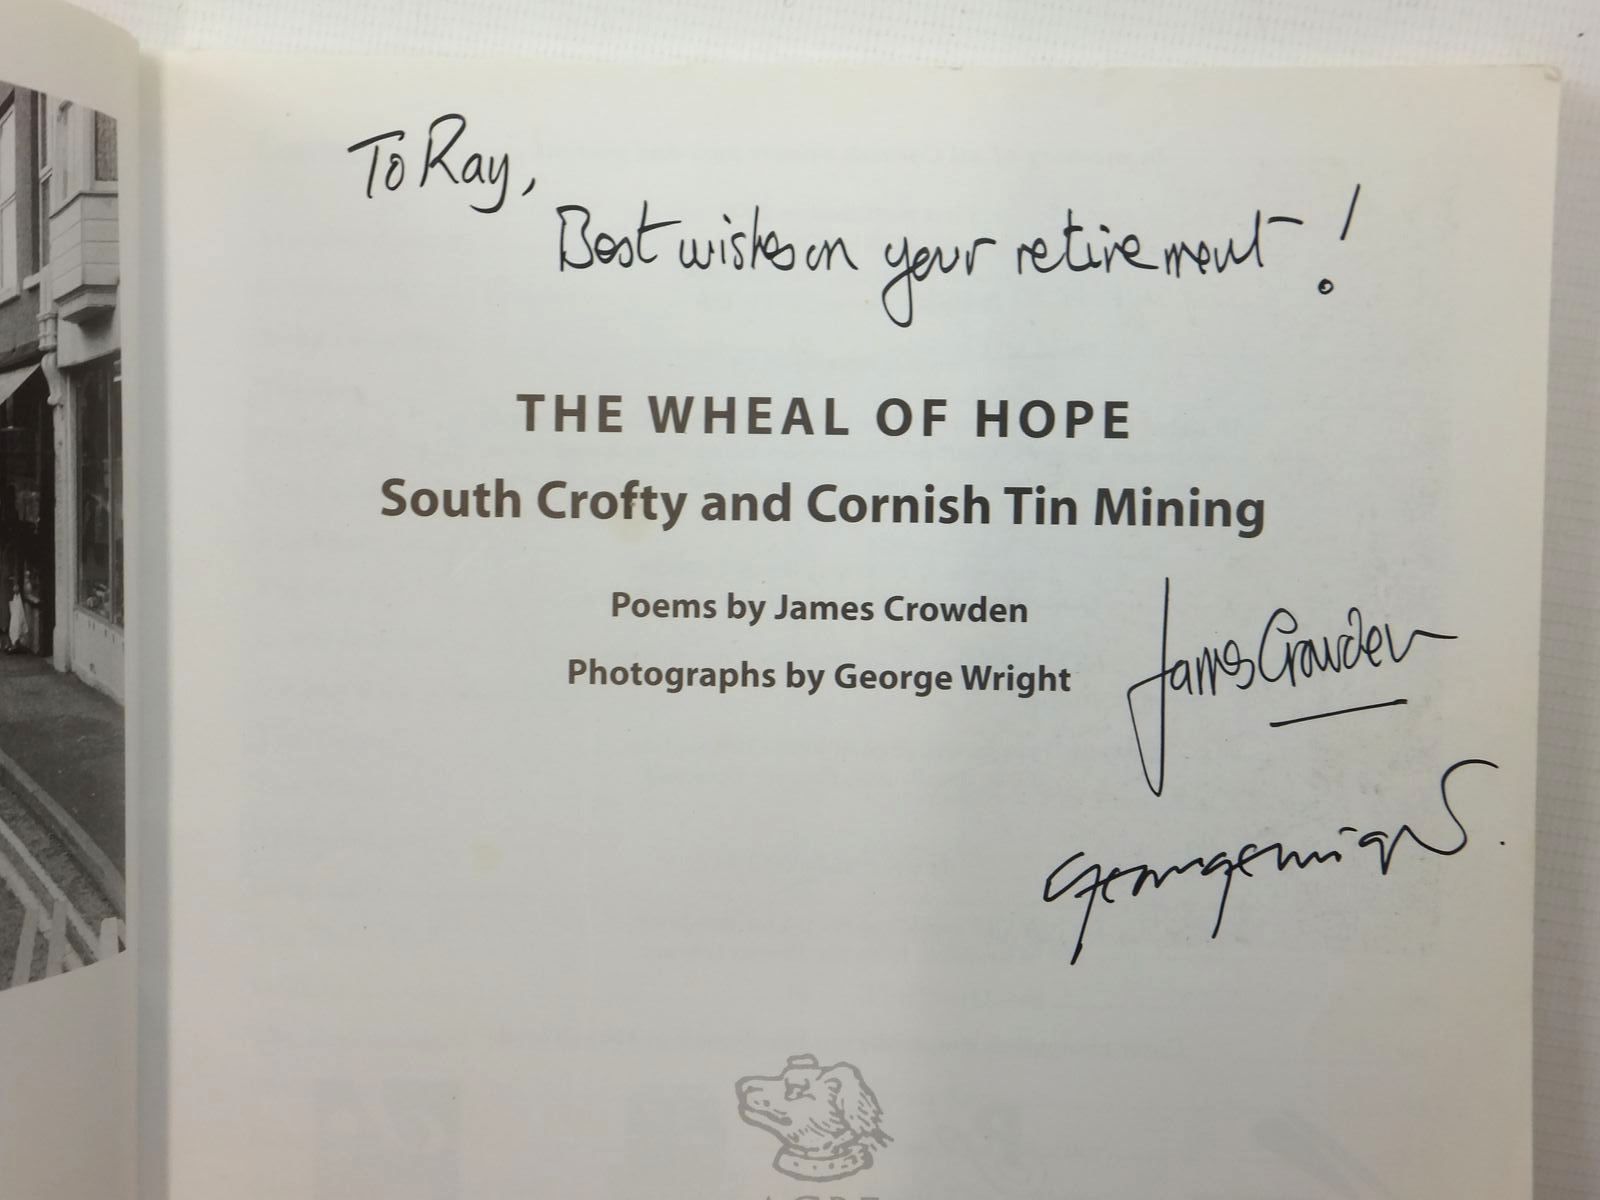 To Ray,
Best wishes on your retirement!
THE WHEAL OF HOPE
South Crofty and Cornish Tin Mining
Poems by James Crowden
Photographs by George Wright
James Crowden
George Wright.